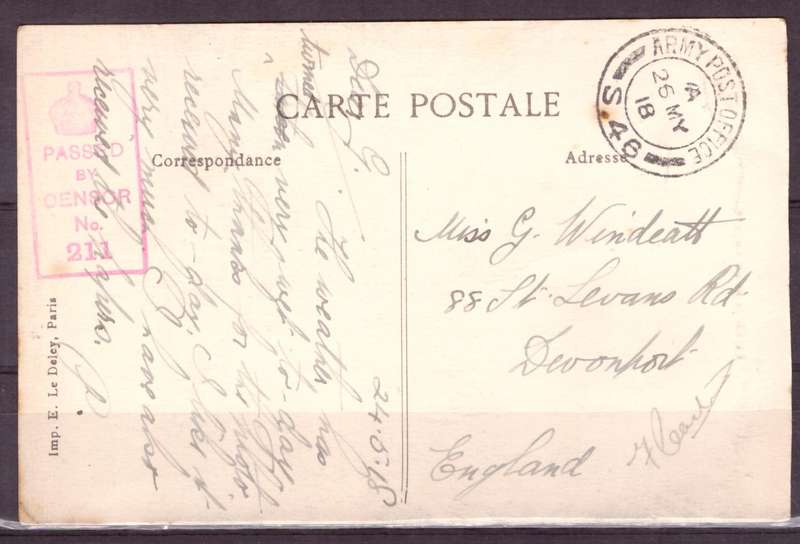 CARTE POSTALE
Correspondance
Adresse
ARMY POST OFFICE
1A
26 MY
18
S. 46
PASSED
BY
CENSOR
No.
211
24.5.18
Dear G. The weather has
turned very wet to-day.
Many thanks for the
received to-day. I like it
very much. I have also
received the papers.
Miss G. Windeatt
88 St Levans Rd
Devonport
England
Imp. E. Le Deley, Paris